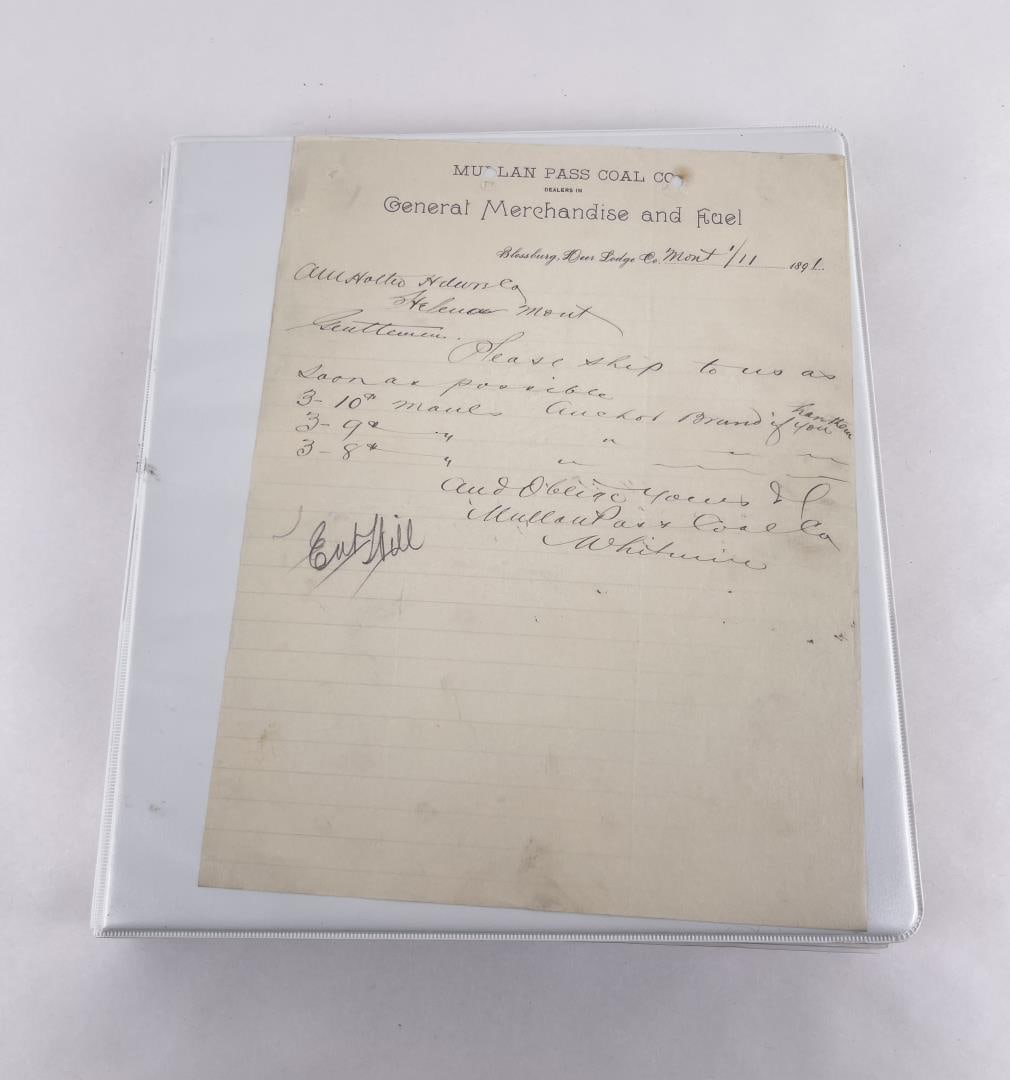 MULLAN PASS COAL CO
DEALERS IN
General Merchandise and Fuel
Blossburg, Deer Lodge Co. Mont 1/11 1891.
AM Holter Hdwr Co
Helena Mont
Gentlemen.
Please ship to us as
soon as possible
3-10# mauls Anchor Brand if you
3-9# " "
3-8# " "
And Oblige Yours
Mullan Pass Coal Co